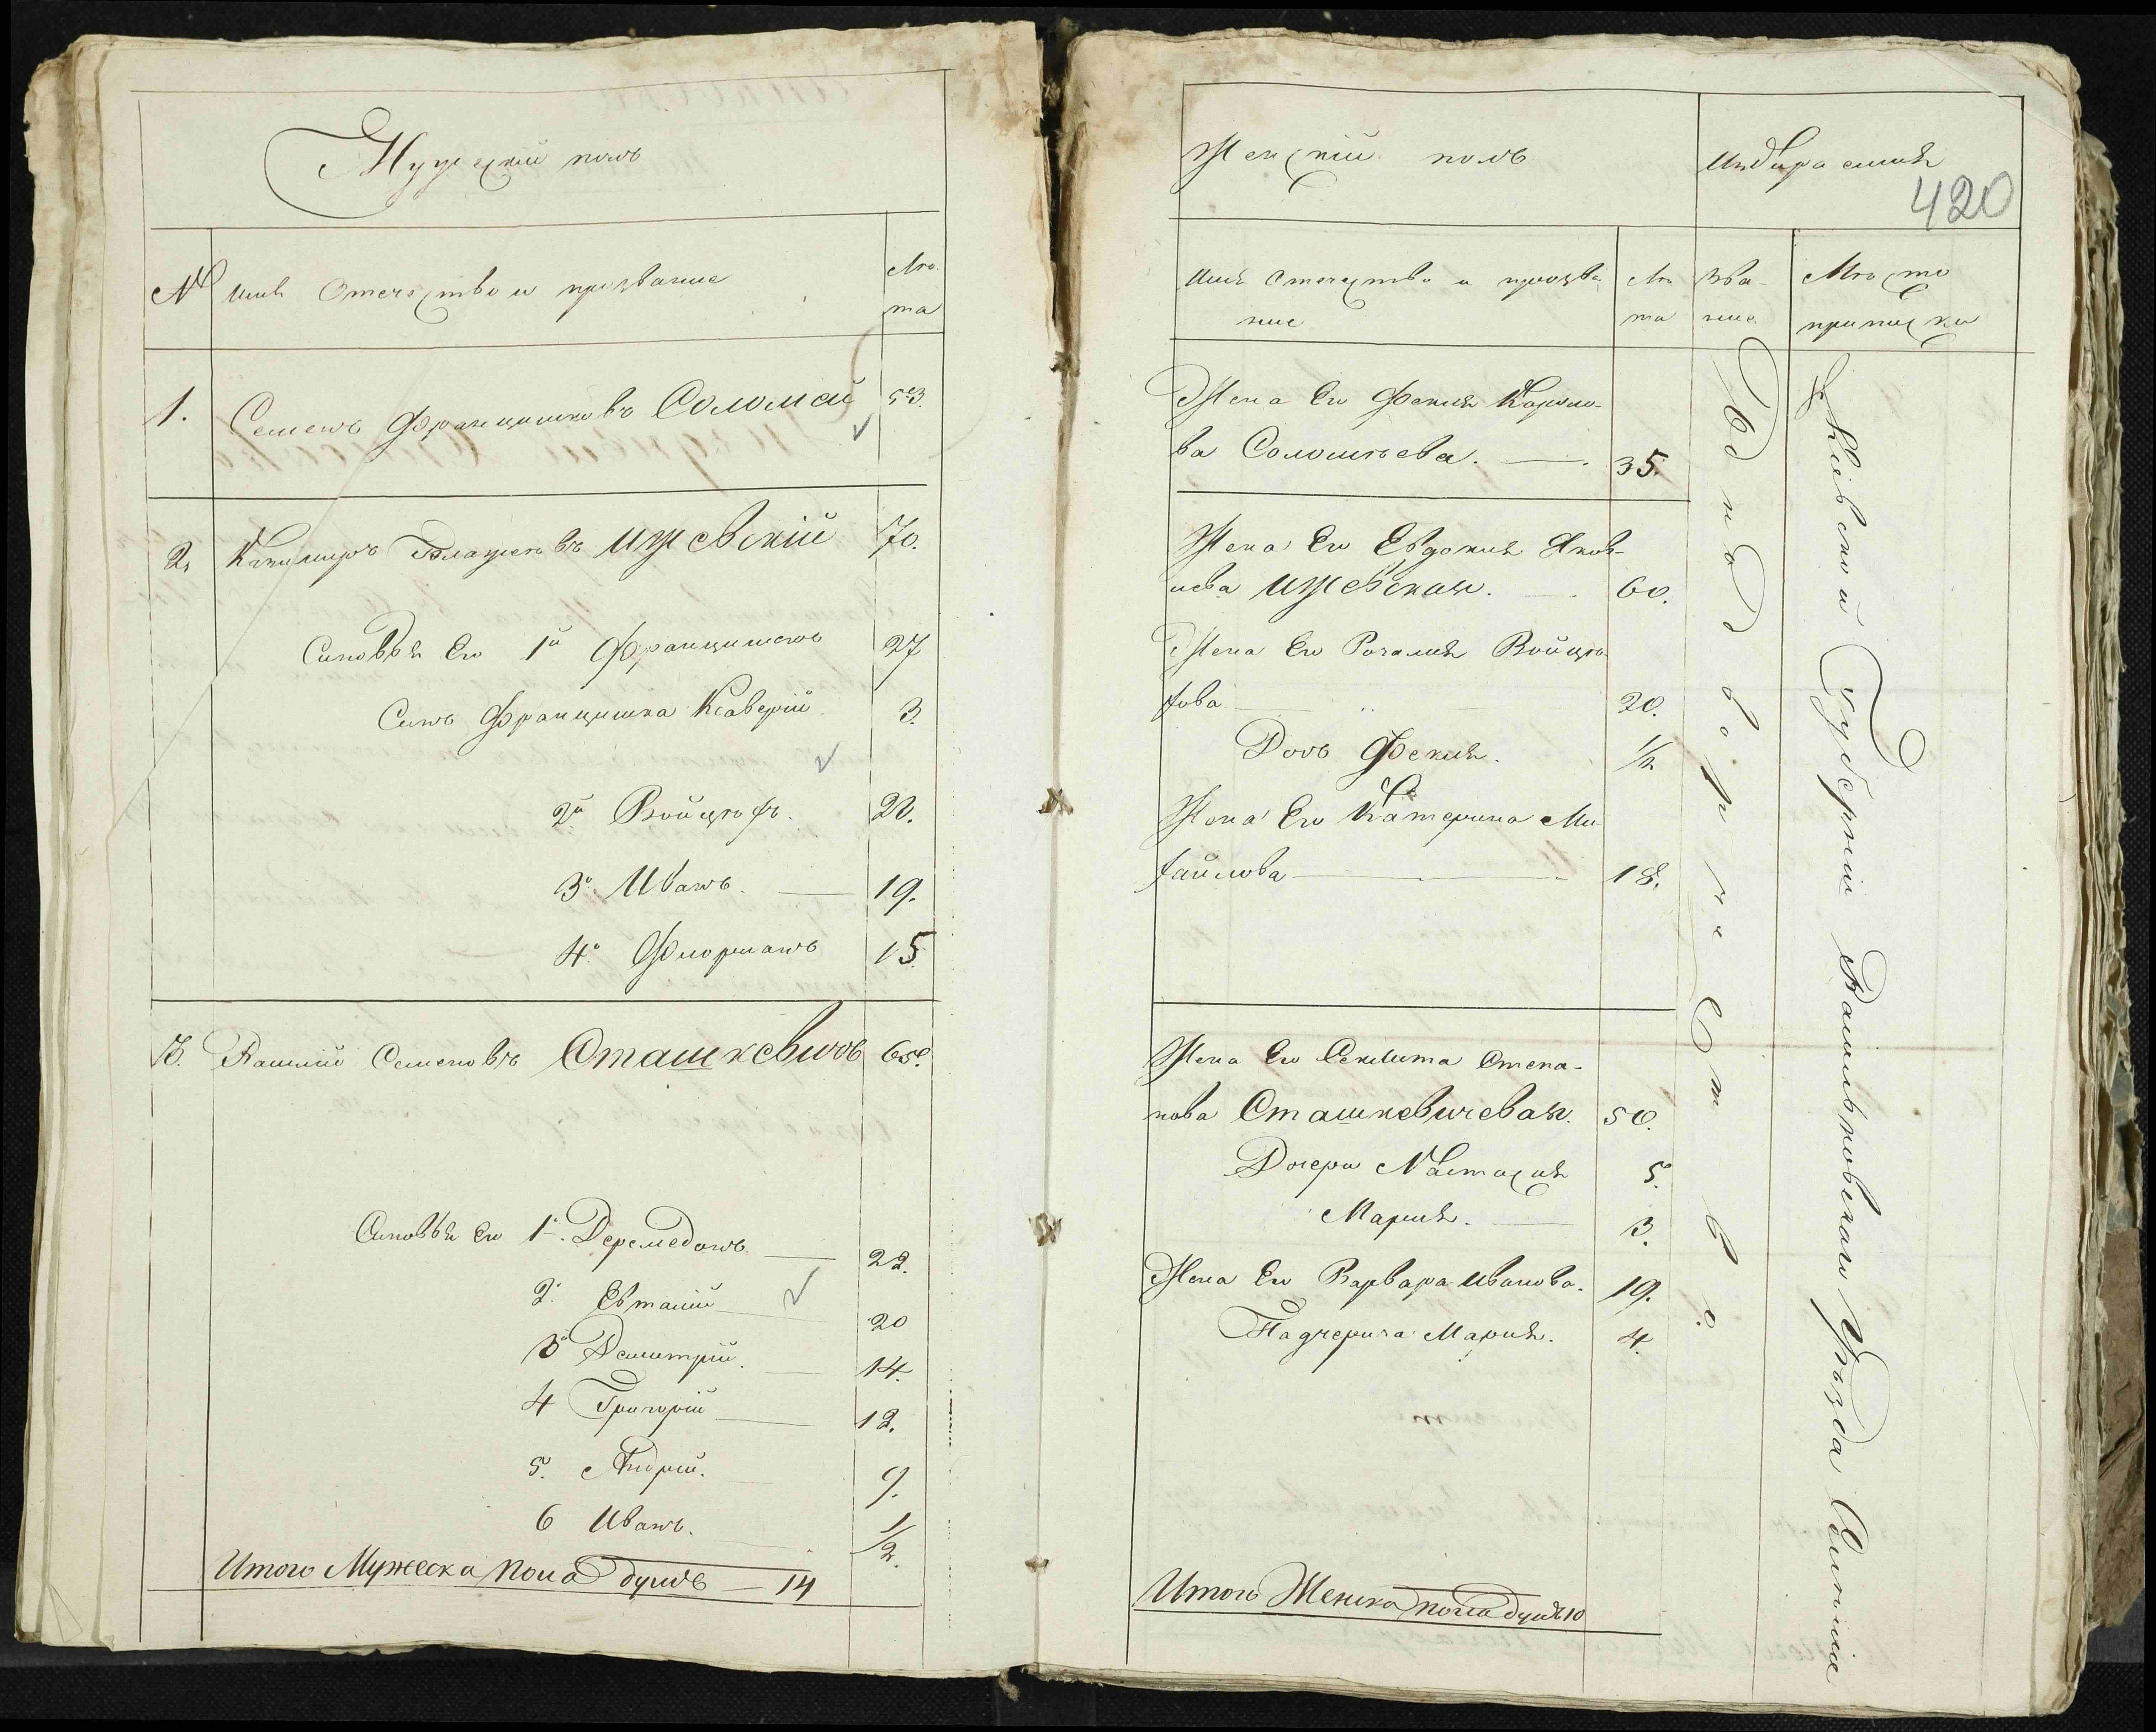 Мужескій полъ
№ имя Отечество и прозвание
Лѣта
1. Семенъ Францишковъ Соломай 53.
2. Казимиръ Блажеевъ Ижевскій 70.
Синовья Его 1й Францишекъ 27
Синъ Францишка Ксаверій 3.
2й Войцѣхъ. 20.
3й Иванъ. 19.
4й Флорианъ 15.
3. Василій Семеновъ Сташкевичъ 65.
Синовья Его 1й Дереледонъ. 22.
2й Евталій 20
3й Демитрій 14.
4 Григорій 12.
5. Андрій. 9.
6 Иванъ. 1/2.
Итого Мужеска Пола душъ — 14
Женскій полъ
420
Имя Отечество и прозва-
ние
Лѣта
Зва-
ние
Мѣсто
приписки
Жена Его Фекия Карпо-
ва Соломѣева. 35.
Жена Его Евдокия Яков-
лева Ижевская. 60.
Жена Его Розалия Войцѣ-
хова 20.
Дочь Фекия. 1/2
Жена Его Катерина Ми-
хайлова 18.
Жена Его Степа-
нова Сташкевичевая. 50.
Дочери Настасия 5.
Мария. 3.
Жена Его Варвара Иванова. 19.
Падчерица Мария. 4.
Итого Женска пола душъ 10
Однодворчество.
Киевской Губерніи Васильковскаго Уѣзда